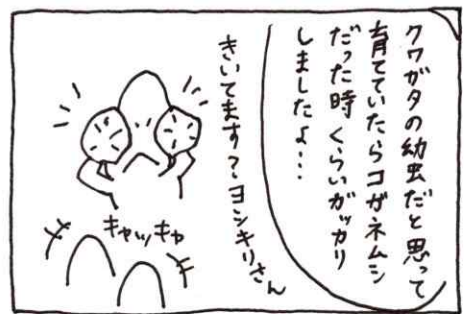 クワガタの幼虫だと思って
育てていたらコガネムシ
だった時くらいガッカリ
しましたよ…
きいてます?ヨンキリさん
キャッキャ